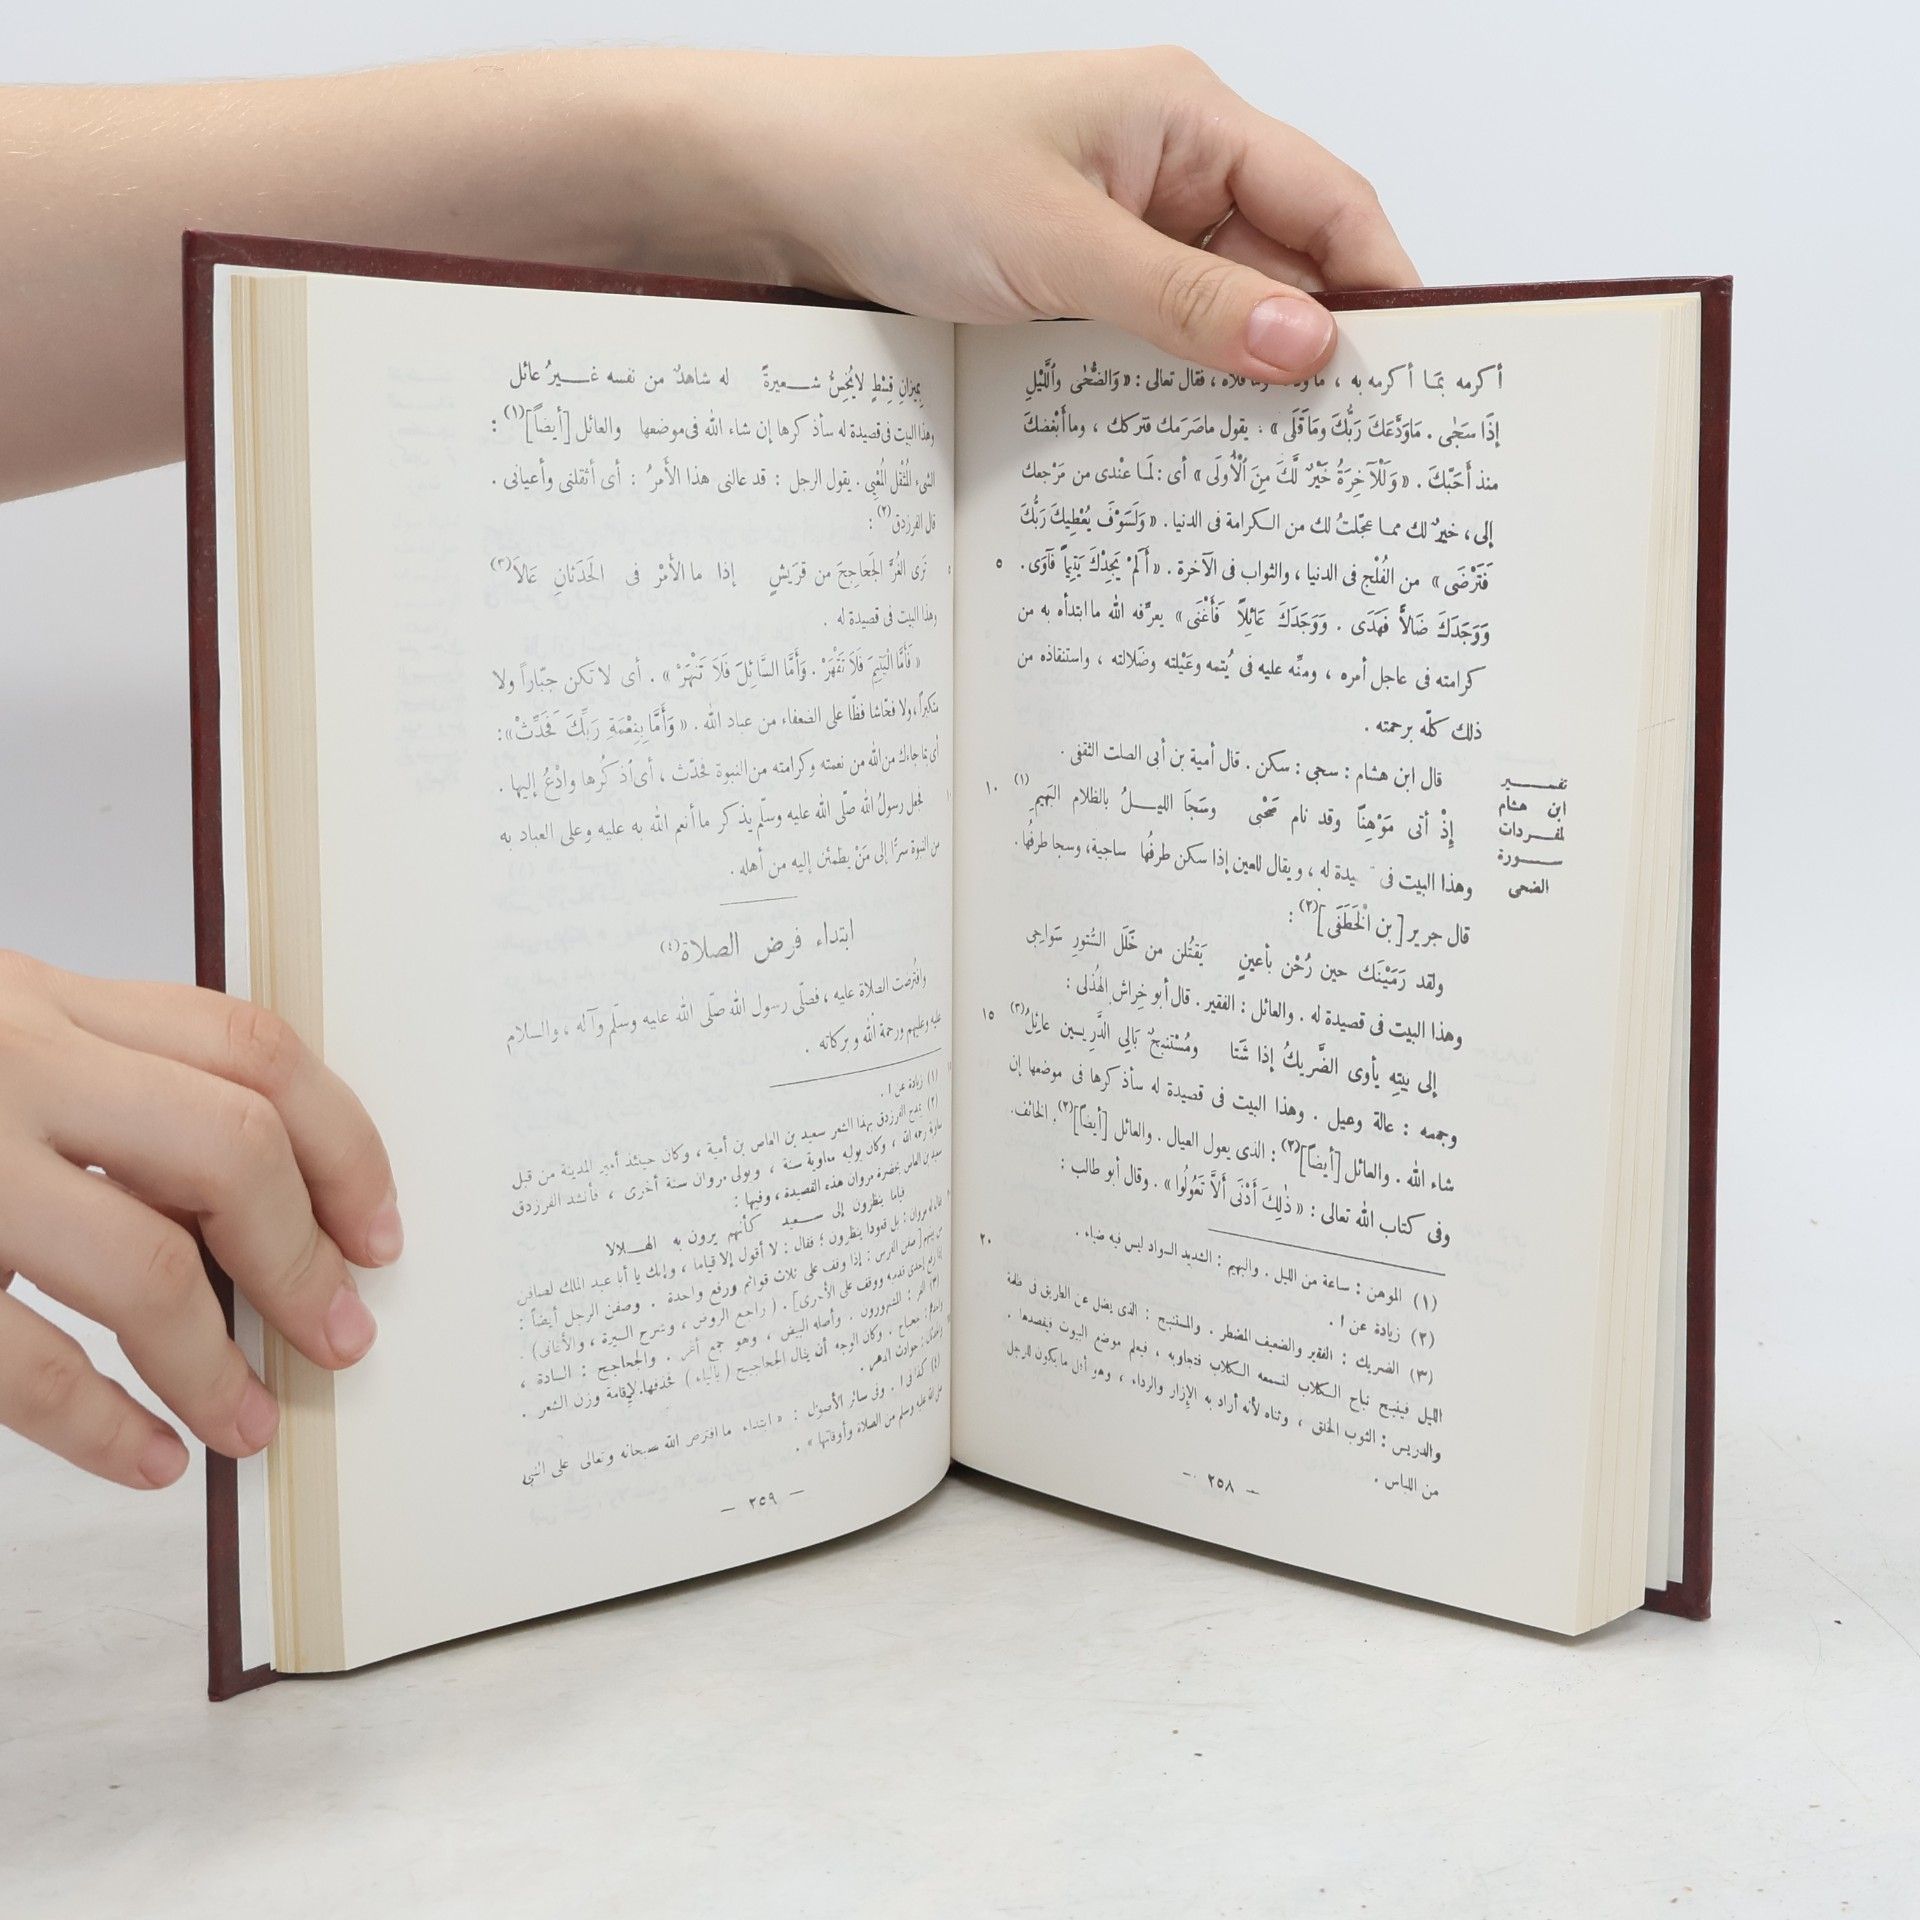 أكرمه بمَا أكرمه به ، قلاه ، فقال تعالى : « وَالضُّحٰى وَاللَّيْلِ
إِذَا سَجٰى . مَاوَدَّعَكَ رَبُّكَ ومَا قَلَى » : يقول ماصَرَمك فتركك ، وما أَبْغضك
منذ أَحَبّكَ . « وَلَلْآخِرَةُ خَيْرٌ لَّكَ مِنَ الْأُولَى » أى : لَمَا عنْدى من مَرْجعك
إلى ، خيرٌ لك مما عجّلتُ لك من الكرامة فى الدنيا . « وَلَسَوْفَ يُعْطِيكَ رَبُّكَ
فَتَرْضَى » من الفُلْج فى الدنيا ، والثواب فى الآخرة . « أَلَمْ يَجِدْكَ يَتِيماً فَآوَى . ٥
وَوَجَدَكَ ضَالاًّ فَهَدَى . وَوَجَدَكَ عَائِلاً فَأَغْنَى » يعرّفه الله ما ابتدأه به من
كرامته فى عاجل أمره ، ومنِّه عليه فى يُتمه وعَيْلته وضَلالته ، واستنقاذه من
ذلك كلّه برحمته .
تفسير
ابن هشام
لمفردات
سورة
الضحى
قال ابن هشام : سجى : سكن . قال أمية بن أبى الصلت الثقفى .
إذْ أتى مَوْهِنًا وقد نام صَحْبى وسَجَا الليلُ بالظلام البَهيمِ (١) ١٠
وهذا البيت فى يدة له ، ويقال للعين إذا سكن طرفُها ساجية ، وسجا طرفُها .
قال جرير [ بن الْخَطَفَى ](٢) :
ولقد رَمَيْنَك حين رُحْن بأعينٍ يَقتُلن من خَلَل السُّتورِ سَواجِى
وهذا البيت فى قصيدة له . والعائل : الفقير . قال أبو خِراش الهُذلى :
إلى بيتِه يأوى الضَّريكُ إذا شَتا ومُسْتنبحٌ بَالِي الدَّرِيسين عائِلُ(٣) ١٥
وجمعه : عالة وعيل . وهذا البيت فى قصيدة له سأذكرها فى موضعها إن
شاء الله . والعائل [أيضاً](٢) : الذى يعول العيال . والعائل [أيضاً](٢). الخائف .
وفى كتاب الله تعالى : « ذٰلِكَ أَدْنَى أَلاَّ تَعُولُوا » . وقال أبو طالب :
(١) الموهن : ساعة من الليل . والبهيم : الشديد السواد ليس فيه ضياء . ٢٠
(٢) زيادة عن ا .
(٣) الضريك : الفقير والضعيف المضطر . والمستنبح : الذى يضل عن الطريق فى ظلمة
الليل فينبح نباح الكلاب لتسمعه الكلاب فتجاوبه ، فيعلم موضع البيوت فيقصدها .
والدريس : الثوب الخلق ، وثناه لأنه أراد به الإزار والرداء ، وهو أقل ما يكون للرجل
من اللباس .
— ٢٥٨ —
بِميزانِ قِسْطٍ لايُخِسُّ شعيرةً له شاهدٌ من نفسه غيرُ عائل
وهذا البيت فى قصيدة له سأذكرها إن شاء الله فى موضعها والعائل [أيضاً](١) :
الشىء المُثْقل المُعْيِى . يقول الرجل : قد عالنى هذا الأَمرُ : أى أثقلنى وأعيانى .
قال الفرزدق(٢) :
تَرى الغُرَّ الجَحاجِحَ من قرَيشٍ إذا ما الأَمْر فى الحَدَثانِ عَالاَ(٣)
وهذا البيت فى قصيدة له .
« فَأَمَّا الْيَتِيمَ فَلاَ تَقْهَرْ . وَأَمَّا السَّائِلَ فَلاَ تَنْهَرْ » . أى لا تكن جبّاراً ولا
متكبراً ، ولا فحّاشا فظّا على الضعفاء من عباد الله . « وَأَمَّا بِنِعْمَةِ رَبِّكَ فَحَدِّثْ » :
أى بما جاءك من الله من نعمته وكرامته من النبوة فحدّث ، أى اذكُرها وادْعُ إليها .
فجعل رسولُ الله صلّى الله عليه وسلّم يذكر ما أنعم الله به عليه وعلى العباد به
من النبوة سرًّا إلى مَنْ يطمئن إليه من أهله .
ابتداء فرض الصلاة(٤)
وافتُرضت الصلاة عليه ، فصلّى رسول الله صلّى الله عليه وسلّم وآله ، والسلام
عليه وعليهم ورحمة الله وبركاته .
(١) زيادة عن ا .
(٢) يمدح الفرزدق بهذا الشعر سعيد بن العاص بن أمية ، وكان حينئذ أمير المدينة من قبل
معاوية رحمه الله ، وكان يوليه معاوية سنة ، ويولى مروان سنة أخرى ، فأنشد الفرزدق
سعيد بن العاص بحضرة مروان هذه القصيدة ، وفيها :
قياما ينظرون إلى سعيد كأنهم يرون به الهلالا
فقال له مروان : بل قعودا ينظرون ؛ فقال : لا أقول إلا قياما ، وإنك يا أبا عبد الملك لصافن
من بينهم [ صفن الفرس : إذا وقف على ثلاث قوائم ورفع واحدة . وصفن الرجل أيضاً :
إذا رفع إحدى قدميه ووقف على الأخرى ] . ( راجع الروض ، وشرح السيرة ، والأغانى ) .
(٣) الغر : المشهورون . وأصله البيض ، وهو جمع أغر . والجحاجح : السادة ،
واحدهم : جحجاح . وكان الوجه أن يقال الجحاجيح ( بالياء ) فحذفها لإقامة وزن الشعر .
والحدثان : حوادث الدهر .
(٤) كذا فى ا . وفى سائر الأصول : « ابتداء ما افترض الله سبحانه وتعالى على النبى
صلى الله عليه وسلم من الصلاة وأوقاتها » .
— ٢٥٩ —